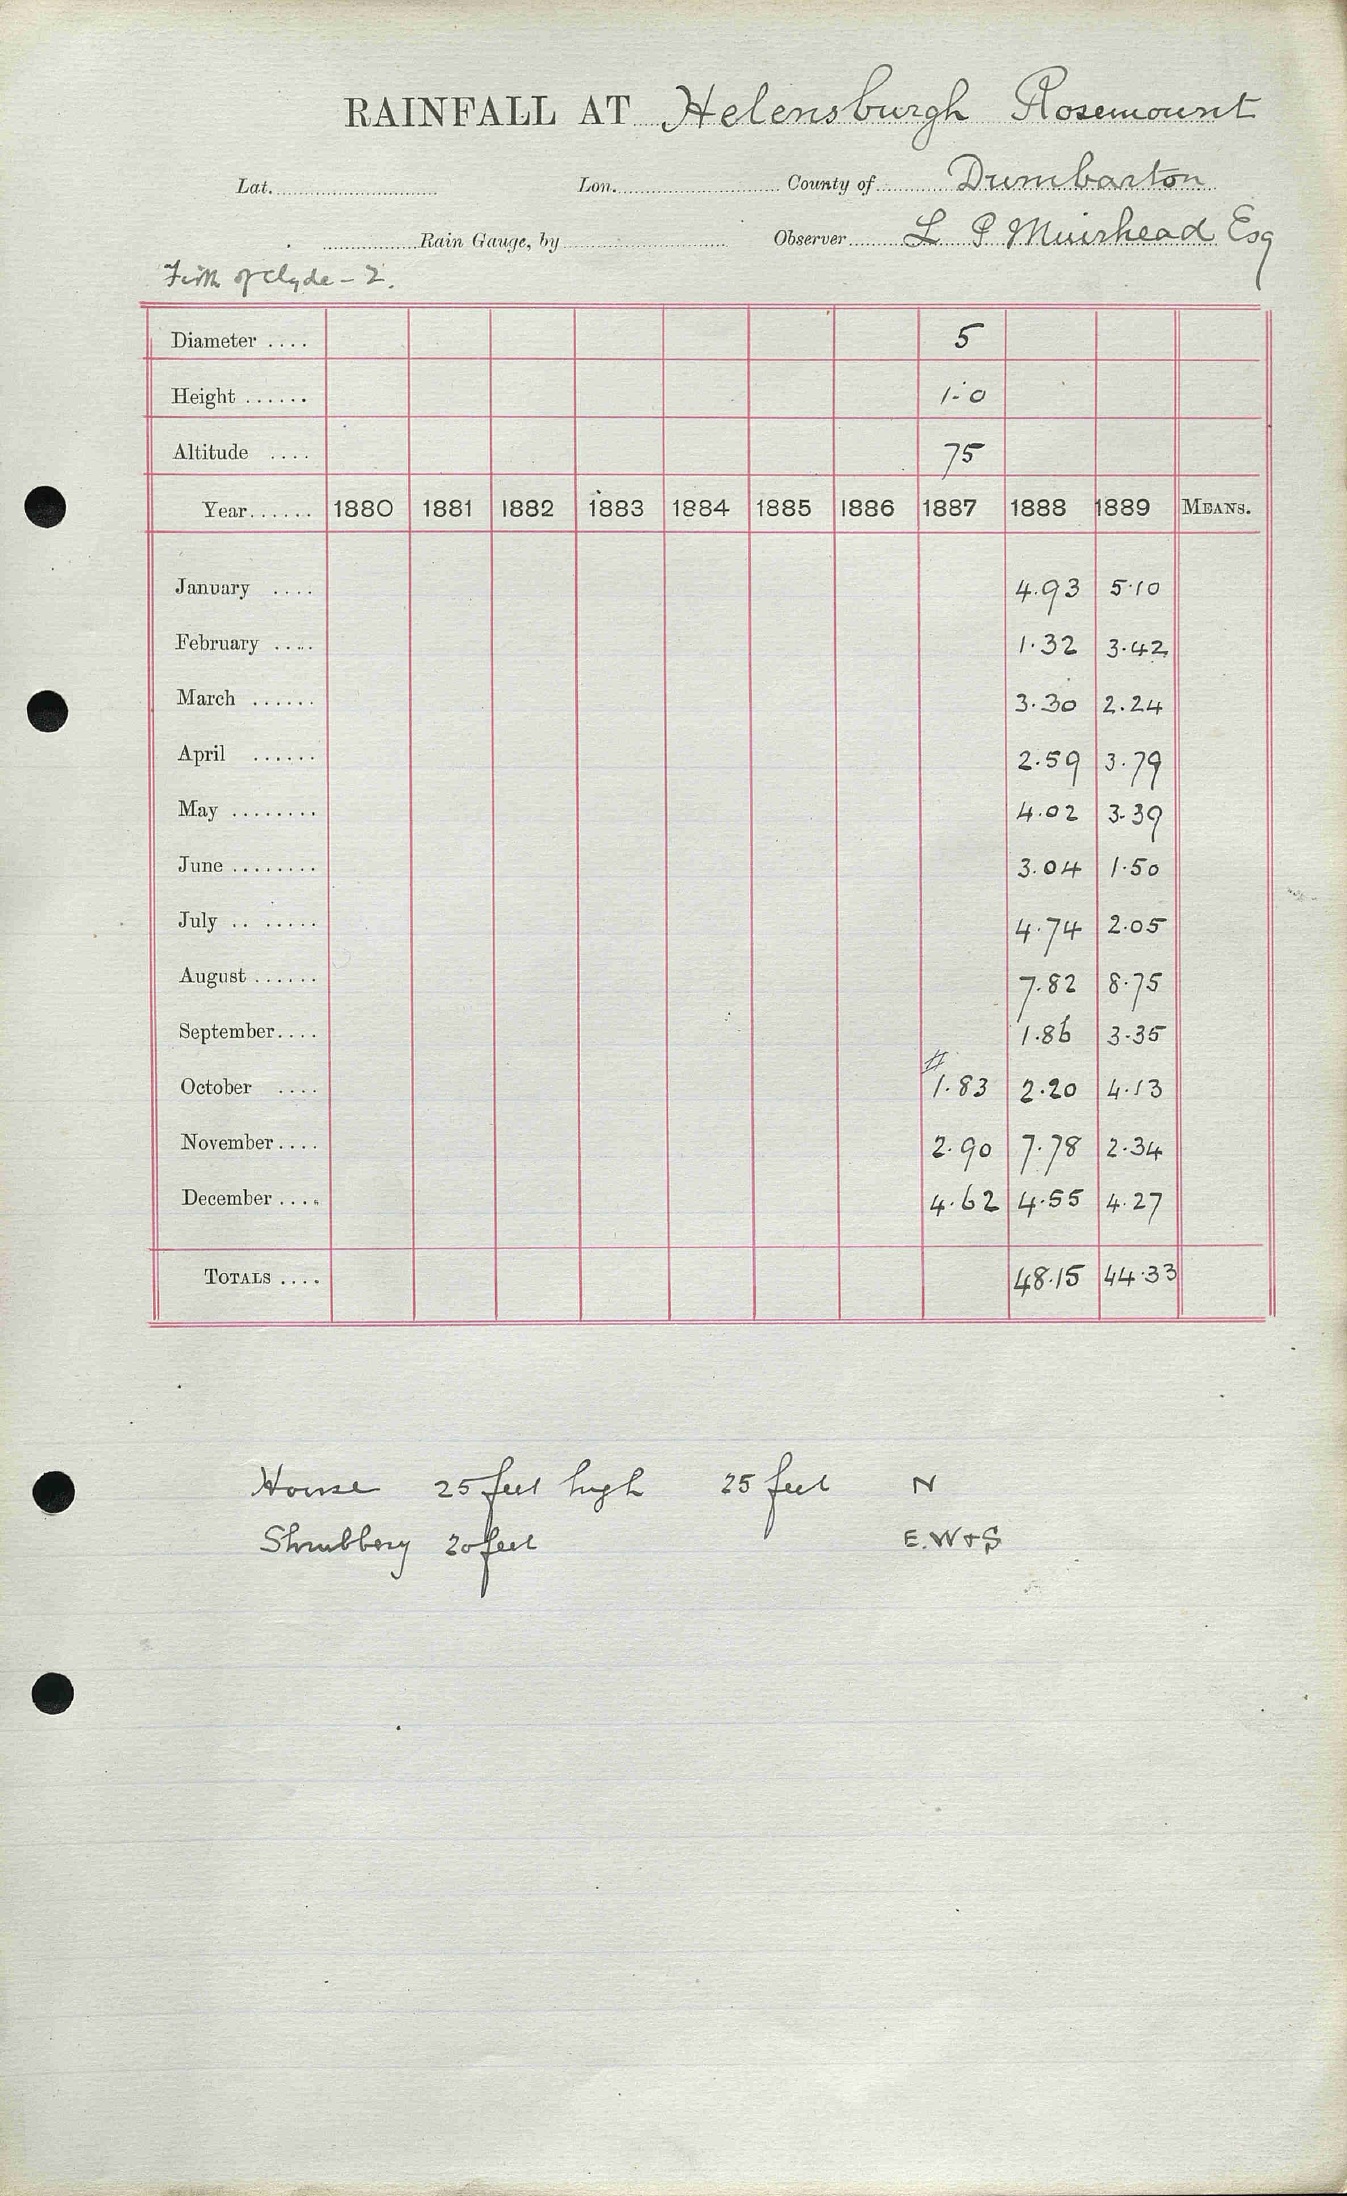 RAINFALL AT Helensburgh Rosemount
Lat. Lon. County of Dumbarton
Rain Gauge, by Observer L P Muirhead Esq
Firth of Clyde - 2.
Diameter .... 5
Height ...... 1.0
Altitude .... 75
Year...... 1880 1881 1882 1883 1884 1885 1886 1887 1888 1889 MEANS.
January .... 4.93 5.10
February .... 1.32 3.42
March ...... 3.30 2.24
April ...... 2.59 3.79
May ........ 4.02 3.39
June ........ 3.04 1.50
July .. ..... 4.74 2.05
August ...... 7.82 8.75
September.... 1.86 3.35
#
October .... 1.83 2.20 4.13
November.... 2.90 7.78 2.34
December .... 4.62 4.55 4.27
TOTALS .... 48.15 44.33
House 25 feet high 25 feet N
Shrubbery 20 feet E. W + S